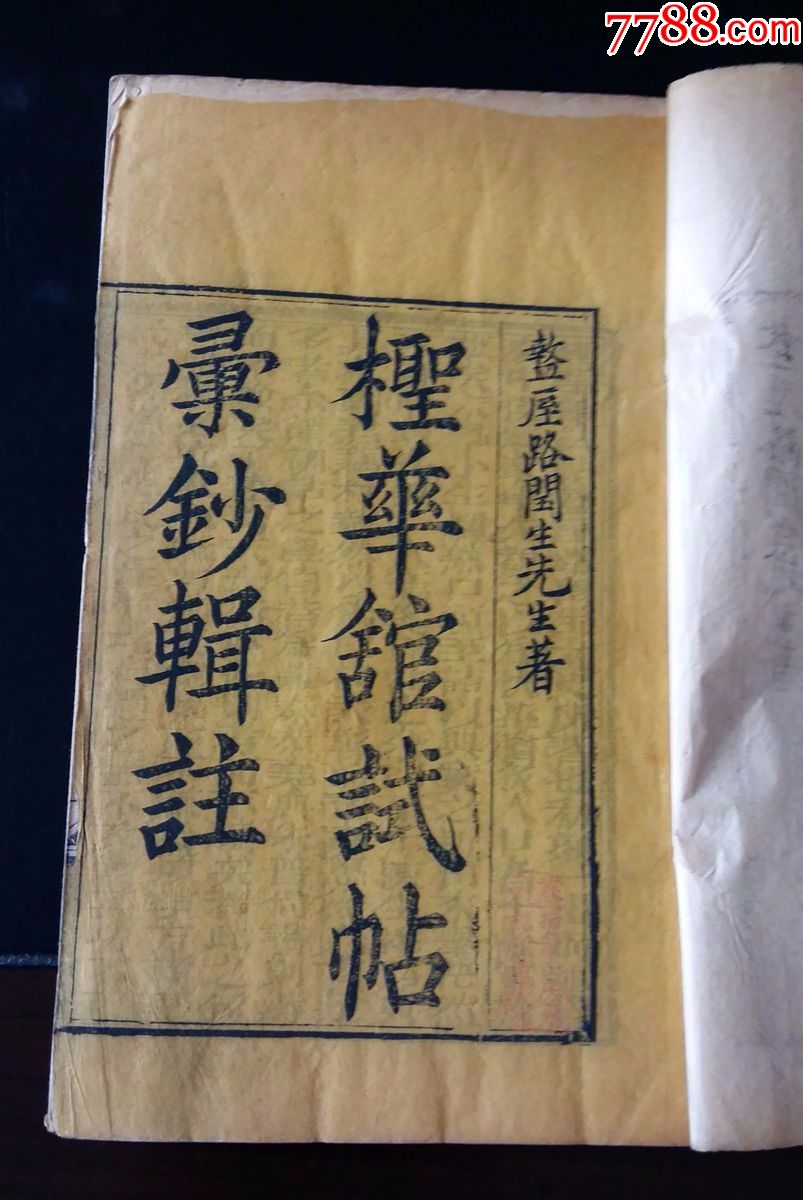 7788.com
盩厔路閏生先生著
檉華館試帖
彙鈔輯註